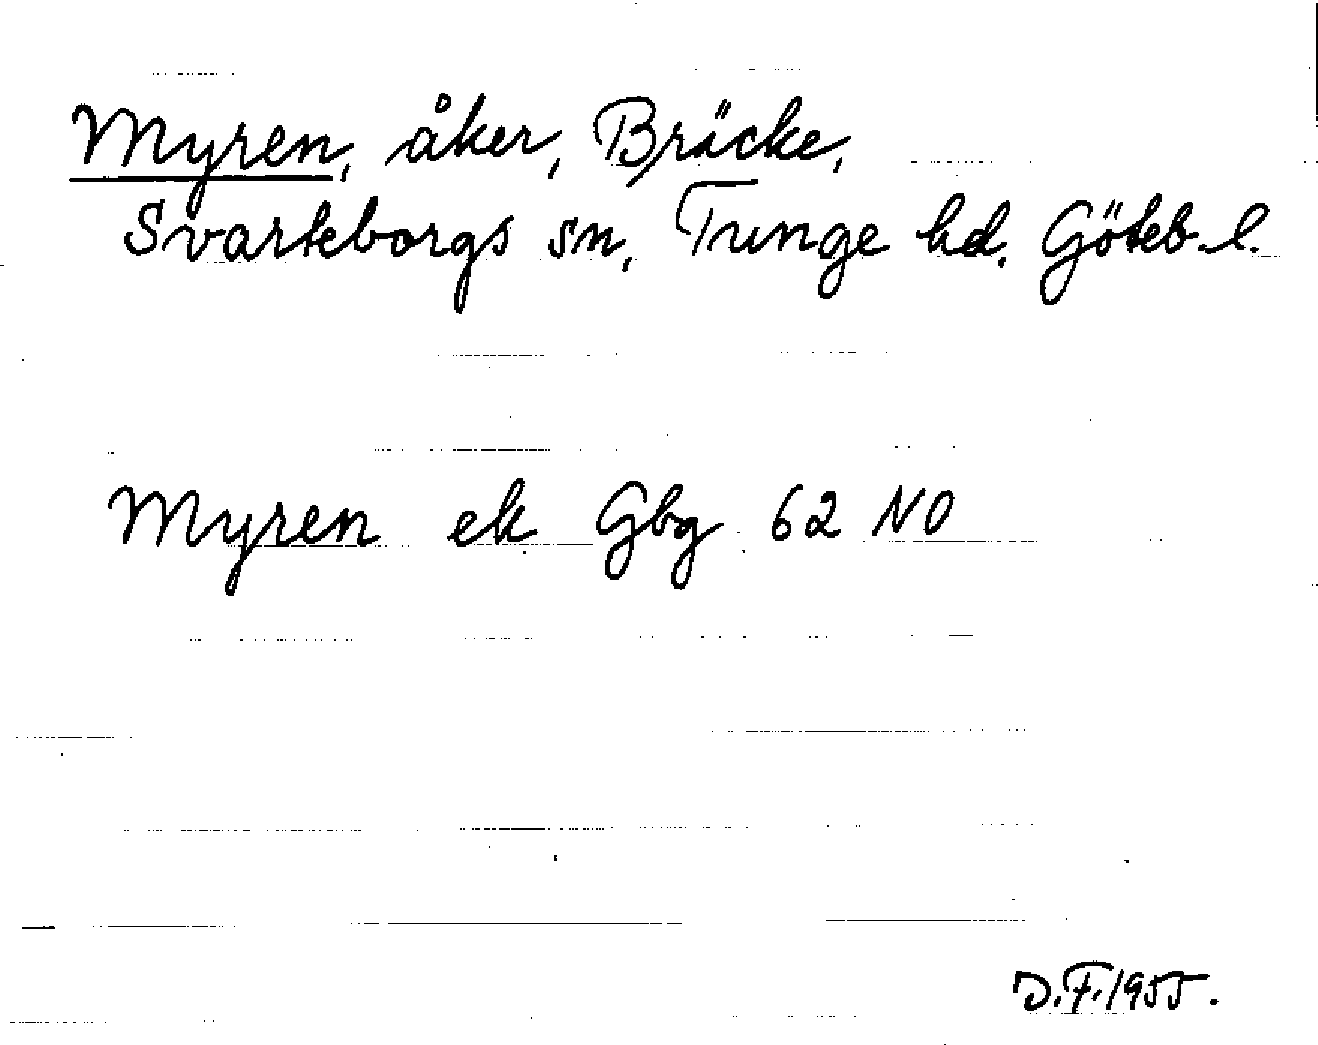 Myren, åker, Bräcke,
Svarteborgs sn, Tunge hd. Göteb. l.
Myren ek Gbg 62 NO
D.F. 1955.